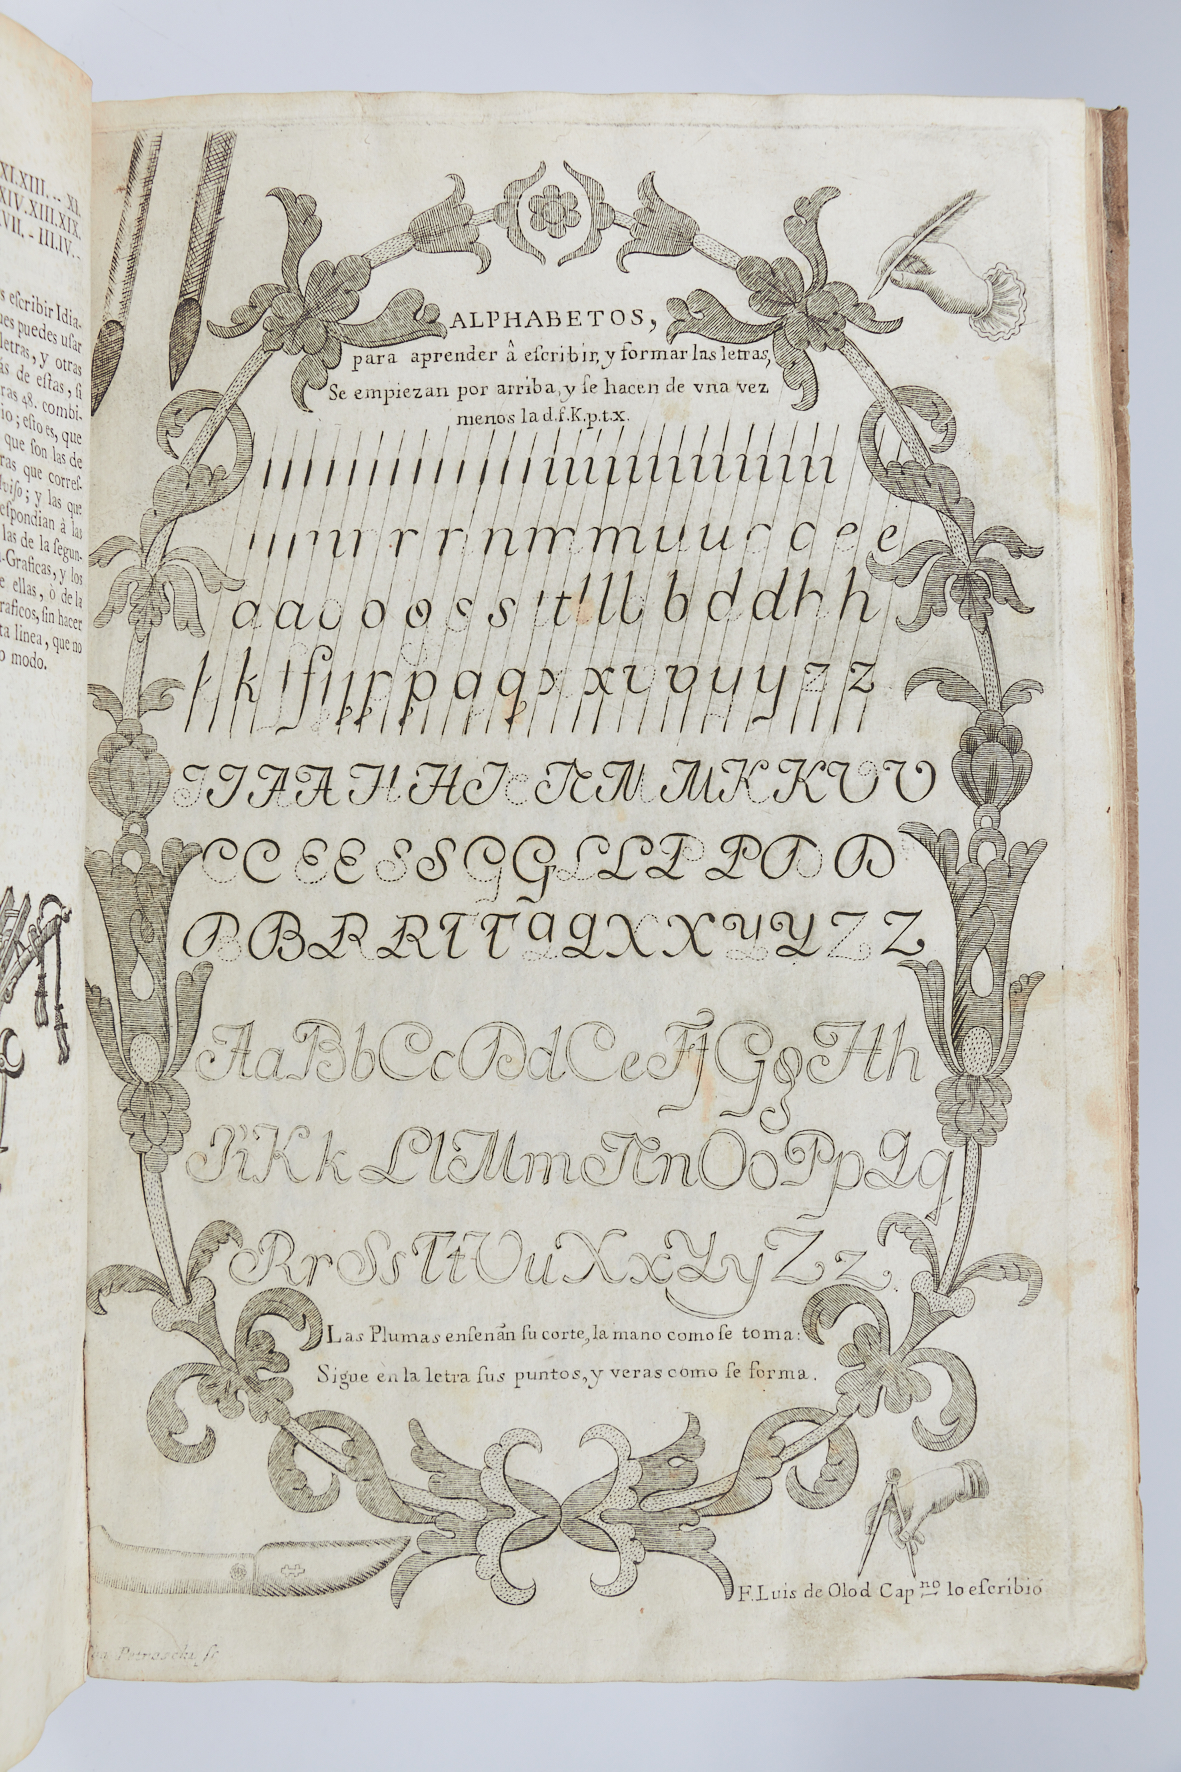 XI.XIII. -- XI.
XIV.XIII.XIX.
VII. - III.IV. -
s eſcribir Idia-
ues puedes uſar
letras, y otras
as de eſtas, ſi
ras 48. combi-
io; eſto es, que
que ſon las de
ras que correſ-
viſo; y las que
eſpondian à las
las de la ſegun-
-Graficas, y los
e ellas, ò de la
raficos, ſin hacer
ta linea, que no
o modo.
ALPHABETOS,
para aprender â eſcribir, y formar las letras,
Se empiezan por arriba, y ſe hacen de vna vez
menos la d.f.K.p.t.x.
ı ı ı ı ı ı ı ı ı ı ı ı ı i i i i i i i i i i i i i
ı ı ı r r r r n n m m u u c c e e
a a o o s s s t l l b b d d h h
k k f f j j p p q q x x v v y y z z
I I A A H H N N M M K K V V
C C E E S S G G L L P P D D
B B R R T T Q Q X X Y Y Z Z
AaBbCcDdCeFfGgHh
IiKkLlMmNnOoPpQq
RrSsTtVuXxYyZz
Las Plumas enſenãn ſu corte, la mano como ſe toma:
Sigue en la letra ſus puntos, y veras como ſe forma.
F. Luis de Olod Cap.no lo eſcribiò
Petroschi ſc